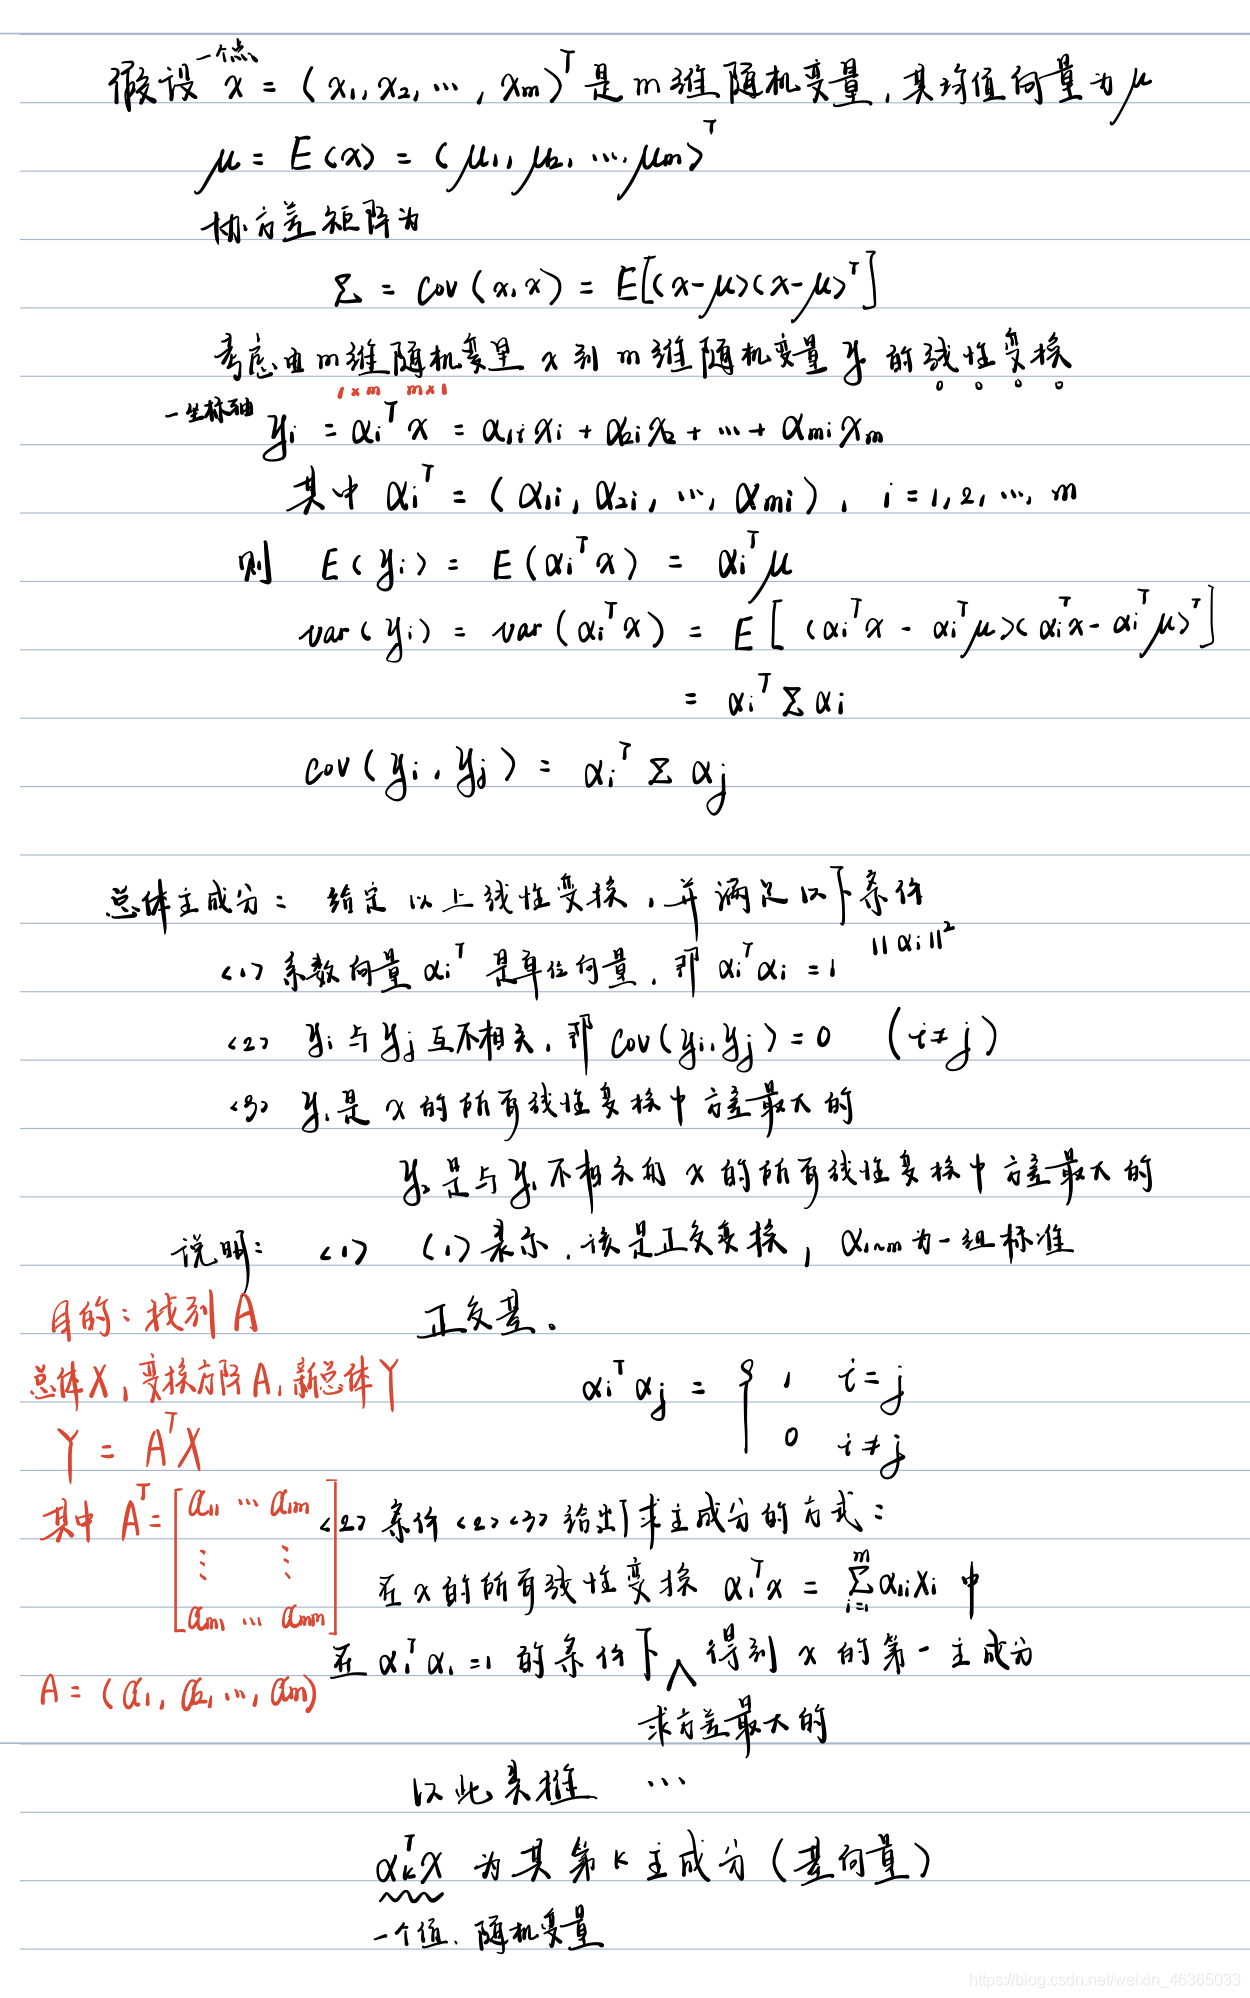 一个点
假设 x = (x₁, x₂, ⋯, xₘ)ᵀ 是 m 维随机变量, 其均值向量为 μ
μ = E(x) = (μ₁, μ₂, ⋯, μₘ)ᵀ
协方差矩阵为
Σ = cov(x, x) = E[(x-μ)(x-μ)ᵀ]
考虑由 m 维随机变量 x 到 m 维随机变量 y 的线性变换
1×m m×1
一坐标轴 yᵢ = αᵢᵀ x = α₁ᵢ xᵢ + α₂ᵢ x₂ + ⋯ + αₘᵢ xₘ
其中 αᵢᵀ = (α₁ᵢ, α₂ᵢ, ⋯, αₘᵢ), i = 1, 2, ⋯, m
则 E(yᵢ) = E(αᵢᵀ x) = αᵢᵀ μ
var(yᵢ) = var(αᵢᵀ x) = E[(αᵢᵀ x - αᵢᵀ μ)(αᵢᵀ x - αᵢᵀ μ)ᵀ]
= αᵢᵀ Σ αᵢ
cov(yᵢ, yⱼ) = αᵢᵀ Σ αⱼ
总体主成分: 给定以上线性变换, 并满足以下条件
<1> 系数向量 αᵢᵀ 是单位向量, 即 αᵢᵀ αᵢ = 1 ||αᵢ||²
<2> yᵢ 与 yⱼ 互不相关, 即 cov(yᵢ, yⱼ) = 0 (i ≠ j)
<3> y₁ 是 x 的所有线性变换中方差最大的
y₂ 是与 y₁ 不相关的 x 的所有线性变换中方差最大的
说明: <1> (1) 表示, 该是正交变换, α₁~ₘ 为一组标准
正交基。
αᵢᵀ αⱼ = { 1, i = j
0 i ≠ j
目的: 找到 A
总体 X, 变换方阵 A, 新总体 Y
Y = Aᵀ X
其中 Aᵀ = [ α₁₁ ⋯ α₁ₘ
⋮ ⋮
αₘ₁ ⋯ αₘₘ ]
A = (α₁, α₂, ⋯, αₘ)
<2> 条件 <2> <3> 给出了求主成分的方式:
在 x 的所有线性变换 α₁ᵀ x = Σᵢ₌₁ᵐ α₁ᵢ xᵢ 中
在 α₁ᵀ α₁ = 1 的条件下 ∧ 得到 x 的第一主成分
求方差最大的
以此类推 ⋯
αₖᵀ x 为其第 k 主成分 (基向量)
一个值, 随机变量
https://blog.csdn.net/weixin_46365033